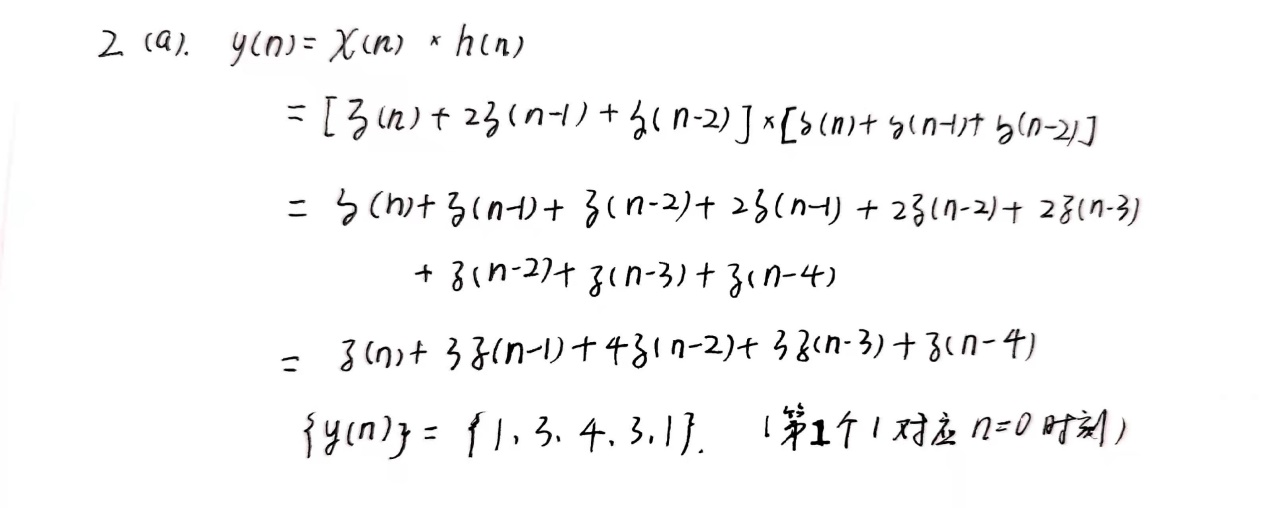 2 (a). y(n) = x(n) * h(n)
= [δ(n) + 2δ(n-1) + δ(n-2)] * [δ(n) + δ(n-1) + δ(n-2)]
= δ(n) + δ(n-1) + δ(n-2) + 2δ(n-1) + 2δ(n-2) + 2δ(n-3)
+ δ(n-2) + δ(n-3) + δ(n-4)
= δ(n) + 3δ(n-1) + 4δ(n-2) + 3δ(n-3) + δ(n-4)
{y(n)} = {1, 3, 4, 3, 1}. (第1个1对应n=0时刻)